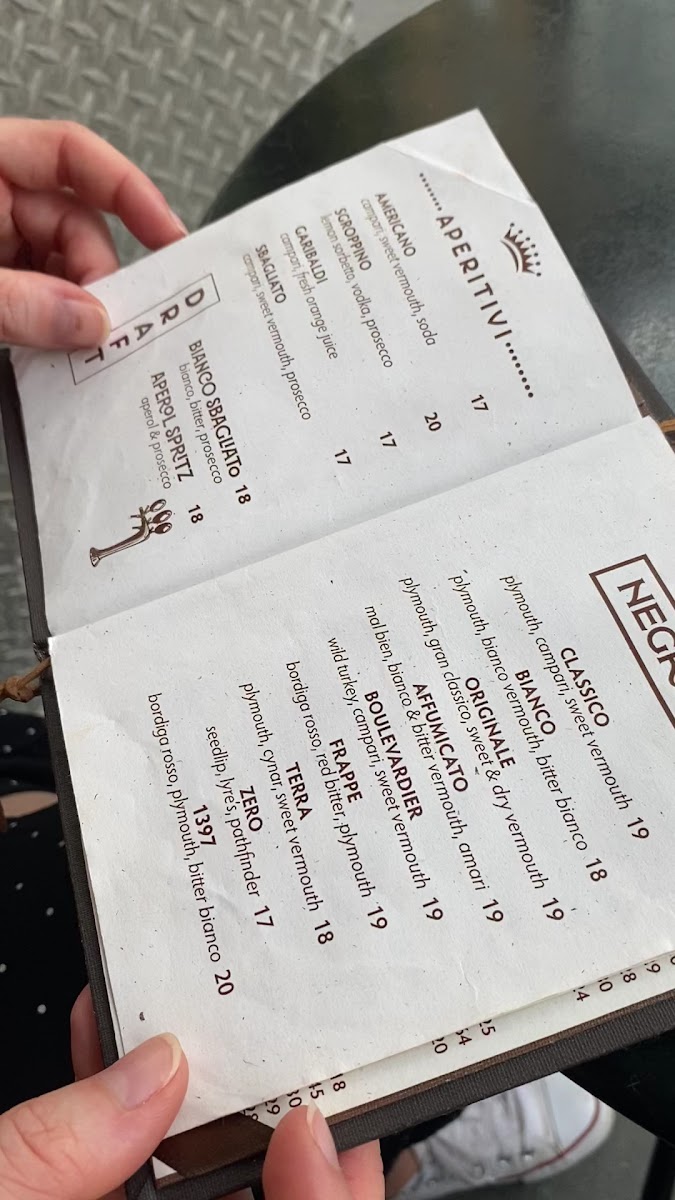 APERITIVI
AMERICANO
campari, sweet vermouth, soda 17
SGROPPINO
lemon sorbetto, vodka, prosecco 20
GARIBALDI
campari, fresh orange juice 17
SBAGLIATO
campari, sweet vermouth, prosecco 17
DRAFT
BIANCO SBAGLIATO 18
bianco, bitter, prosecco
APEROL SPRITZ 18
aperol & prosecco
NEGR
CLASSICO
plymouth, campari, sweet vermouth 19
BIANCO
plymouth, bianco vermouth, bitter bianco 18
ORIGINALE
plymouth, gran classico, sweet & dry vermouth 19
AFFUMICATO
mal bien, bianco & bitter vermouth, amari 19
BOULEVARDIER
wild turkey, campari, sweet vermouth 19
FRAPPE
bordiga rosso, red bitter, plymouth 19
TERRA
plymouth, cynar, sweet vermouth 18
ZERO
seedlip, lyre's, pathfinder 17
1397
bordiga rosso, plymouth, bitter bianco 20